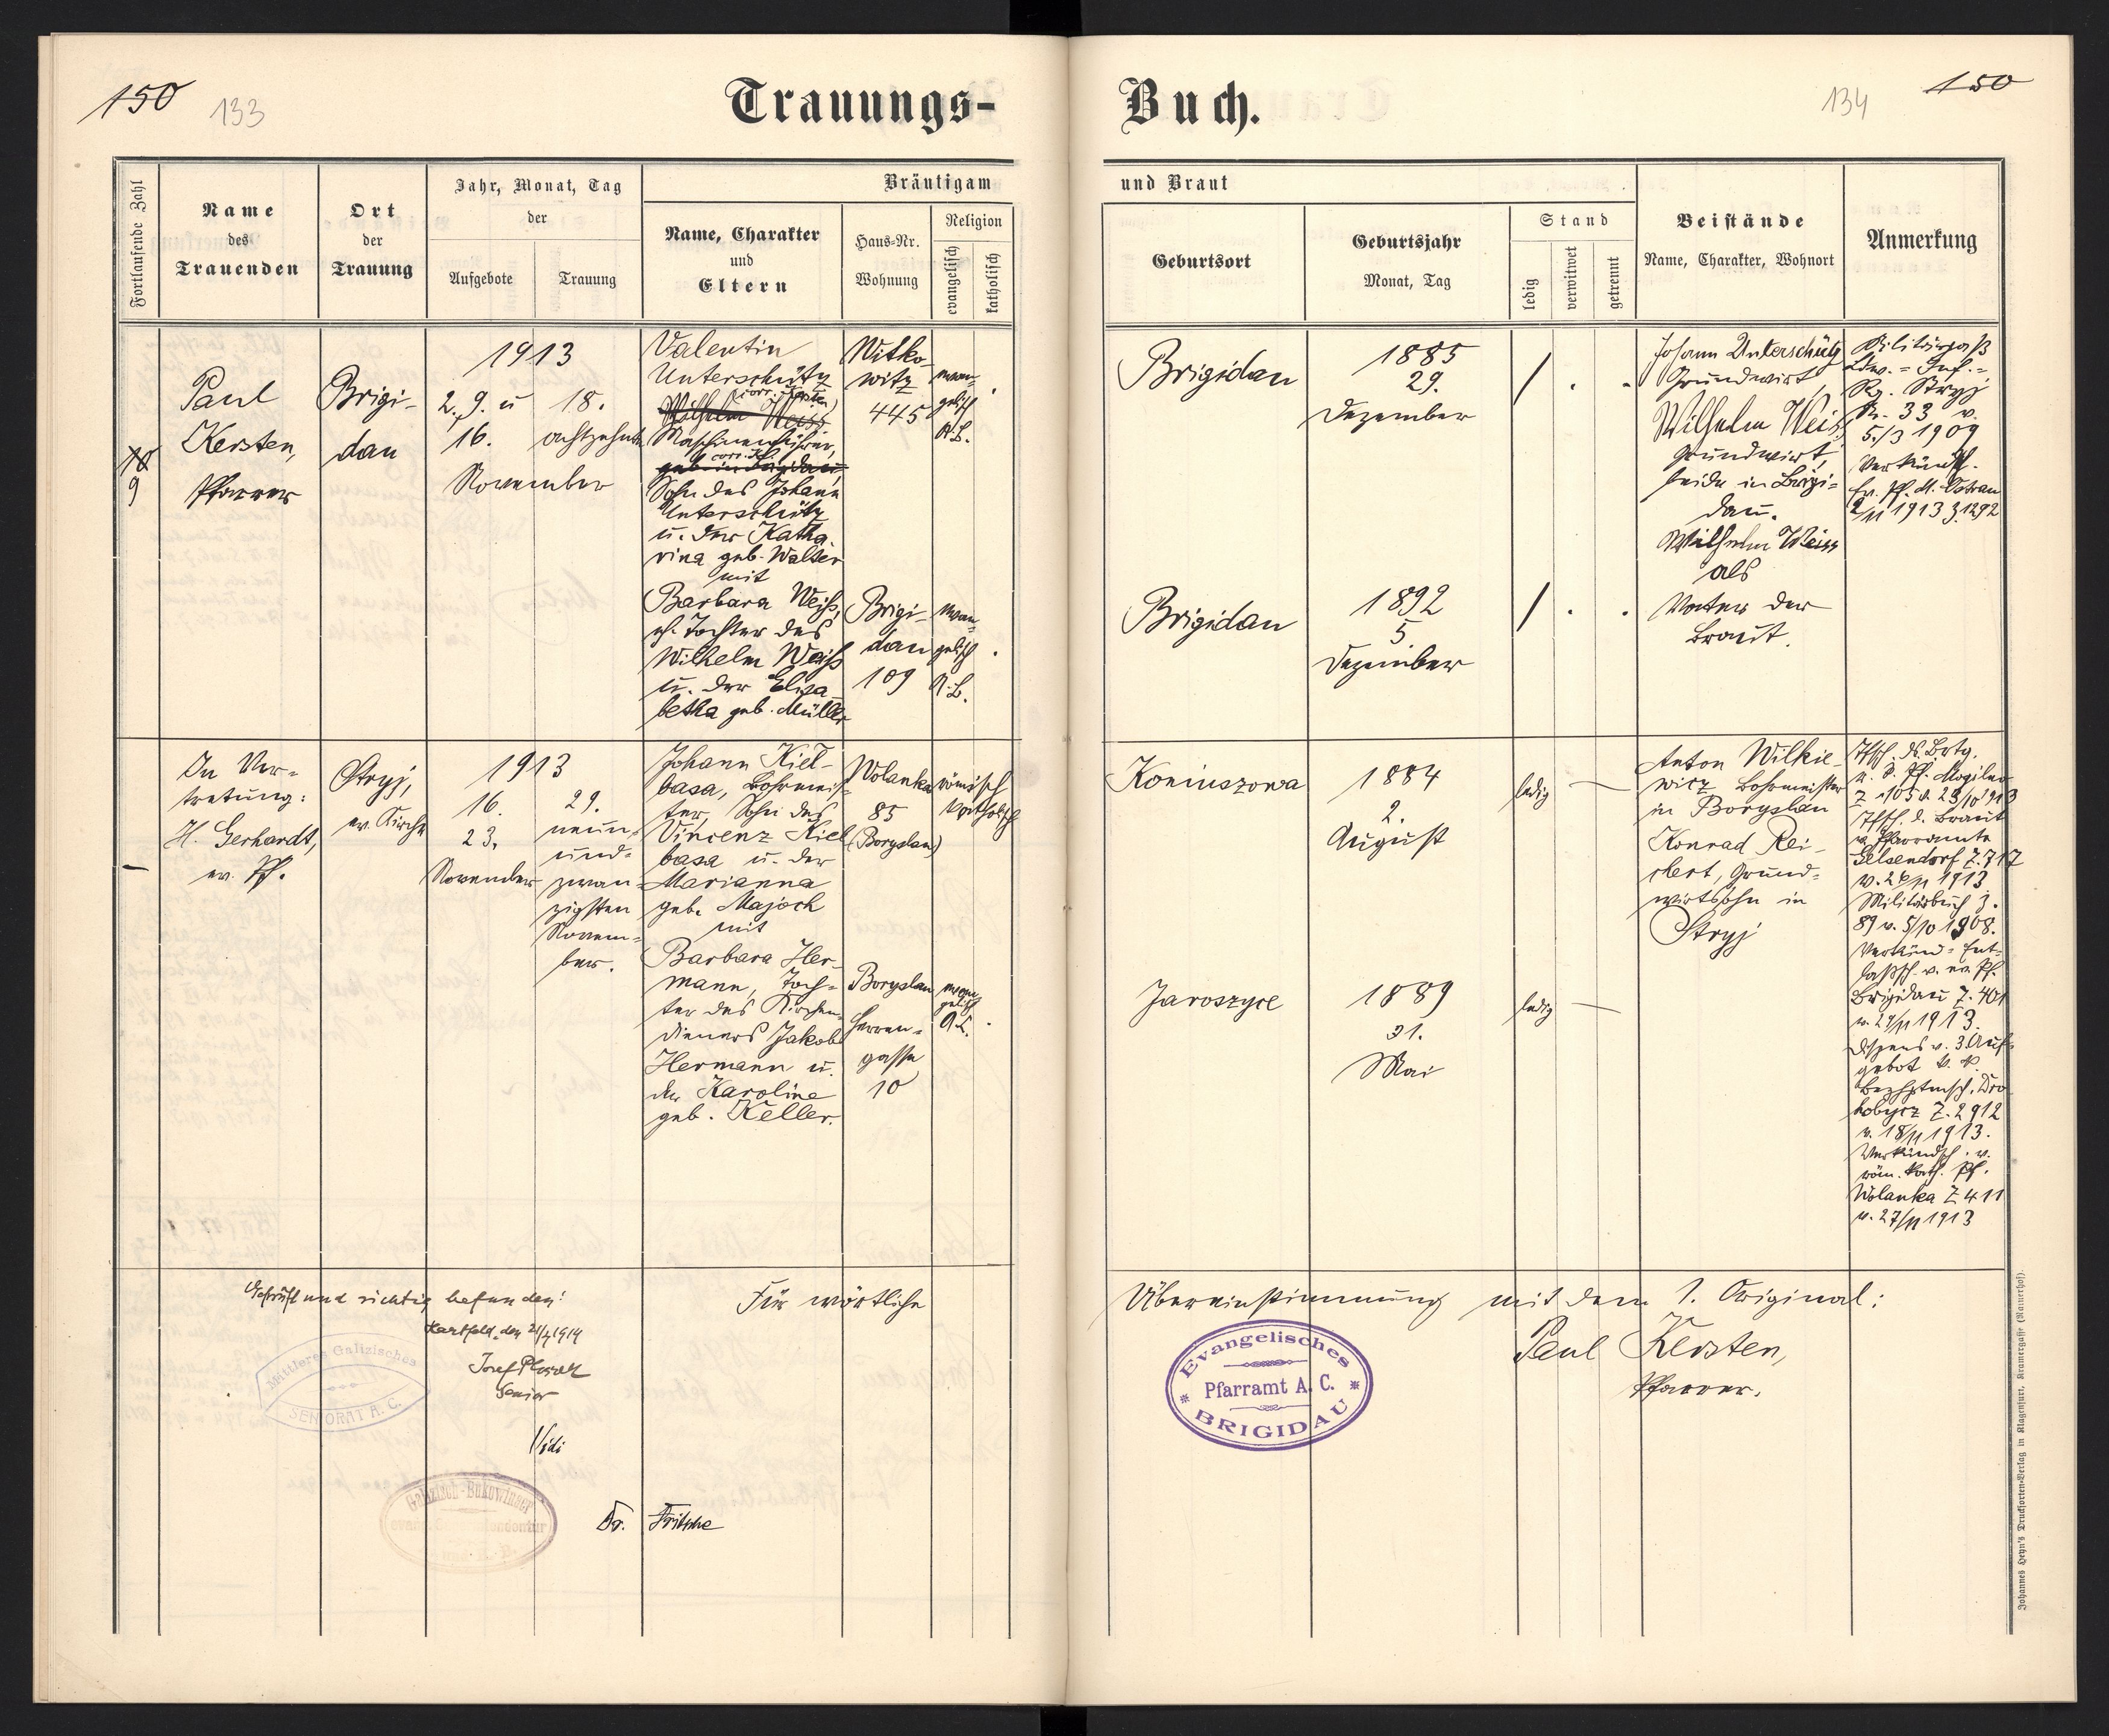 150
133
Trauungs-
Fortlaufende Zahl
Name
des
Trauenden
Ort
der
Trauung
Jahr, Monat, Tag
der
Aufgebote
Trauung
Bräutigam
Name, Charakter
und
Eltern
Haus-Nr.
Wohnung
Religion
evangelisch
katholisch
10
9
Paul
Kersten,
Pfarrer
Brigi-
dau
1913
2., 9. u
16.
18.
achtzehnten
November
Valentin
Unterschütz
(corr. Kersten)
Wilhelm Weiss
Maschinenheizer,
corr. K.
geb. in Brigidau,
Sohn des Johann
Unterschütz
u. der Katha-
rina geb. Walter
mit
Barbara Weiß,
eh. Tochter des
Wilhelm Weiß
u. der Elisa-
betha geb. Müller
Witko-
witz
445
evan-
gelisch
A.B.
Brigi-
dau
109
evan-
gelisch
A.B.
—
In Ver-
tretung:
H. Gerhardt,
ev. Pf.
Stryj,
ev. Kirche
1913
16.
23.
November
29.
neun-
und-
zwan-
zigsten
Novem-
ber.
Johann Kiel-
basa, Bohrmeis-
ter, Sohn des
Vincenz Kiel-
basa u. der
Marianna
geb. Majoch
mit
Barbara Her-
mann, Toch-
ter des Kirchen-
dieners Jakob
Hermann u.
der Karoline
geb. Keller.
Wolanka
85
(Boryslau)
römisch
katholisch
Boryslau
Herren-
gasse
10
evan-
gelisch
A.B.
Geprüft und richtig befunden!
Hartfeld, den 21/4 1914
Josef
Senior
Mittleres Galizisches
SENIORAT A. C.
Vidi
Galizisch-Bukowinaer
Dr. Fritsche
Für wörtliche
Buch.
134
150
und Braut
Geburtsort
Geburtsjahr
Monat, Tag
Stand
ledig
verwitwet
getrennt
Beistände
Name, Charakter, Wohnort
Anmerkung
Brigidau
1885
29.
Dezember
/
Johann Unterschütz
Grundwirt
Wilhelm Weiß
Grundwirt,
beide in Brigi-
dau.
Wilhelm Weiss
als
Vater der
Braut.
Militärpaß
Ldw.-Inf.-
Rg. Stryj
Nr. 33 v.
5./3 1909
Verkündsch.
Ev. Pf. M. Ostrau
2/11 1913 Z. 1292
Brigidau
1892
5
Dezember
/
Koniuszowa
1884
2.
August
ledig —
Anton Wilkie-
wicz Bohrmeister
in Boryslau
Konrad Rei-
chert, Grund-
wirtssohn in
Stryj
Tfsch. ds. Brtg.
v. k. Pf. Mogilno
Z. 105 v. 23/10 1913
Tfsch. d. Braut
v. Pfarramte
Gelsendorf Z. 717
v. 26/11 1913
Militärbuch Z.
89 v. 5/10 1908.
Verkünd- Ent-
laßsch. v. ev. Pf.
Brigidau Z. 401
v. 24/11 1913.
Dispens v. 3. Auf-
gebot k. k.
Bezhptmsch. Dro-
hobycz Z. 2912
v. 18/11 1913.
Verkündsch. v.
röm. kath. Pf.
Wolanka Z 411
v. 27/11 1913
Jaroszyce
1889
31.
Mai
ledig —
Übereinstimmung mit dem 1. Original:
Paul Kersten,
Pfarrer.
Evangelisches
Pfarramt A. C.
BRIGIDAU
Johannes Heyn's Drucksorten-Verlag in Klagenfurt, Kramergasse (Rainerhof).